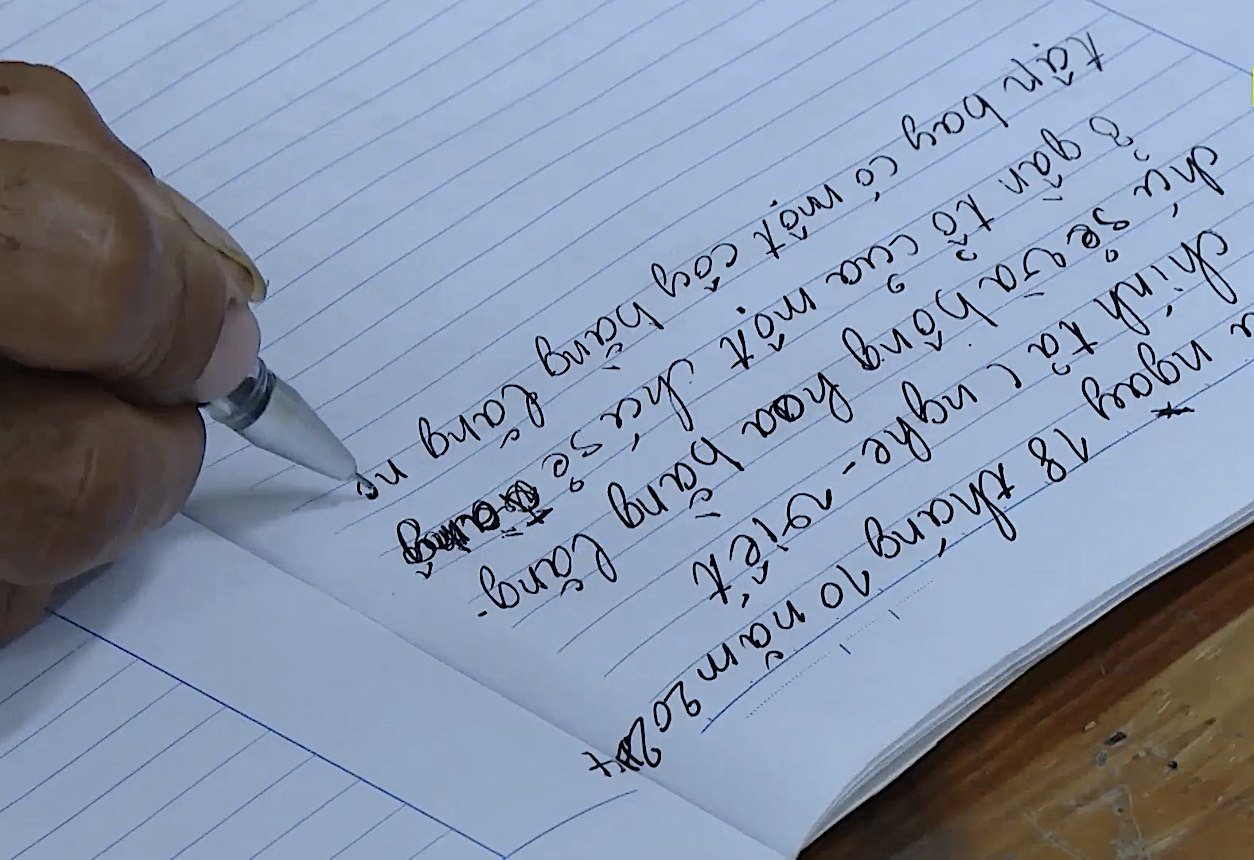 ngay 18 tháng 10 năm 2024
chính tả ( nghe - viết
chú sẻ và bông hoa bằng lăng.
ở gần tổ của một chú sẻ
tập bay có một cây bằng lăng no